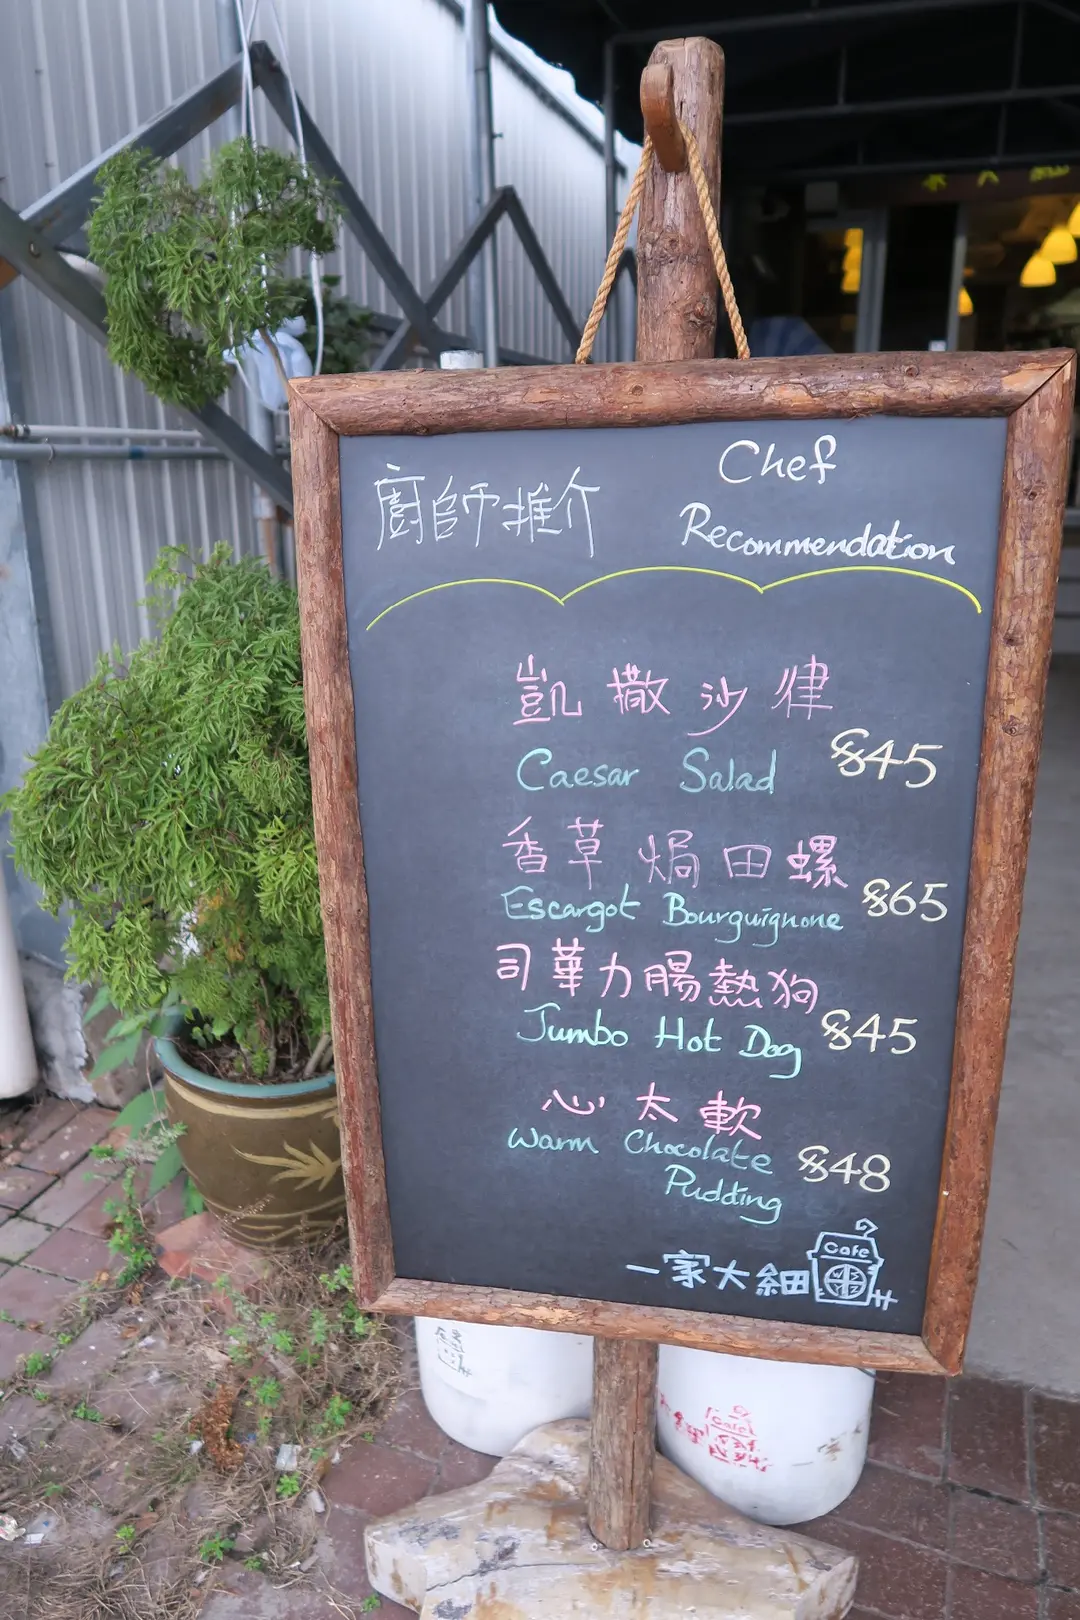 廚師推介
Chef
Recommendation
凱撒沙律
Caesar Salad $45
香草焗田螺
Escargot Bourguignone $65
司華力腸熱狗
Jumbo Hot Dog $45
心太軟
Warm Chocolate
Pudding $48
一家大細
Cafe